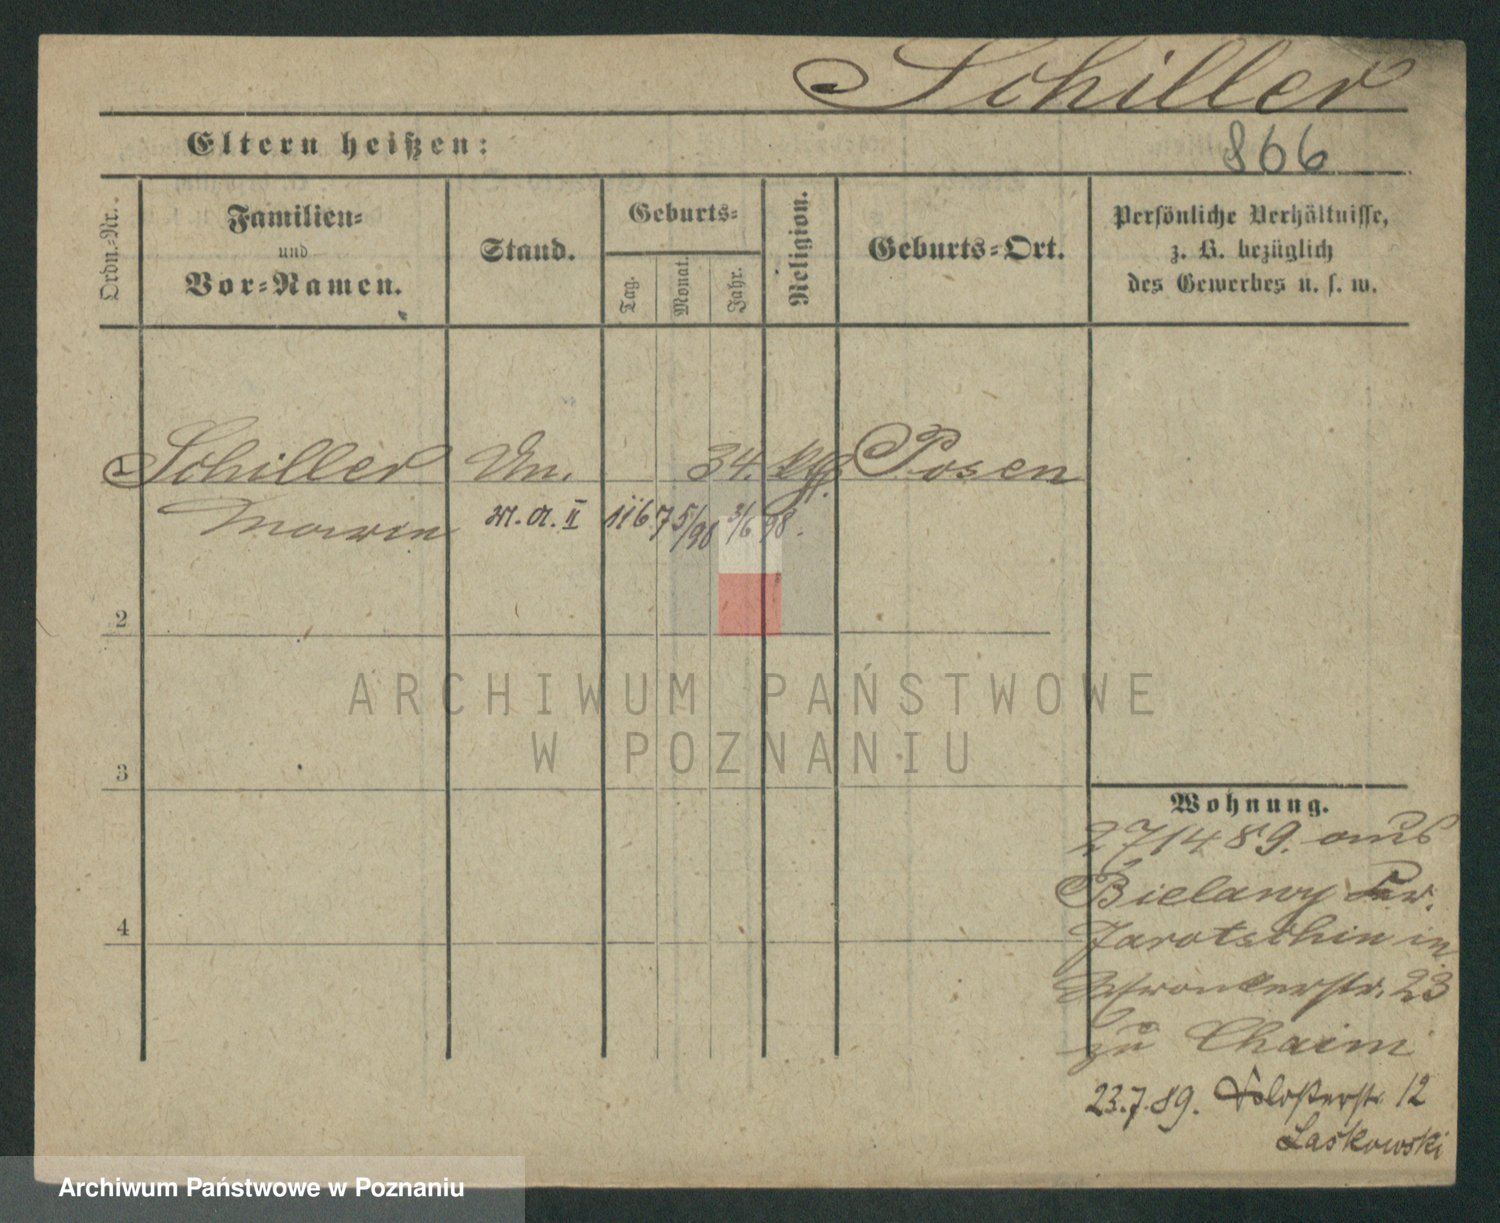 Schiller
Eltern heißen:
866
Ordn.-Nr.
Familien-
und
Vor-Namen.
Stand.
Geburts-
Tag.
Monat.
Jahr.
Religion.
Geburts-Ort.
Persönliche Verhältnisse,
z. B. bezüglich
des Gewerbes u. s. w.
1 Schiller 34. Posen
M. A. II 1167 5/98 3/6 98.
2
ARCHIWUM PAŃSTWOWE
W POZNANIU
3
Wohnung.
27/4 89. aus
Bielawy Kr.
4
Jarotschin in
Wronkerstr. 23
zu Chaim
23.7.89. 12
Laskowski
Archiwum Państwowe w Poznaniu